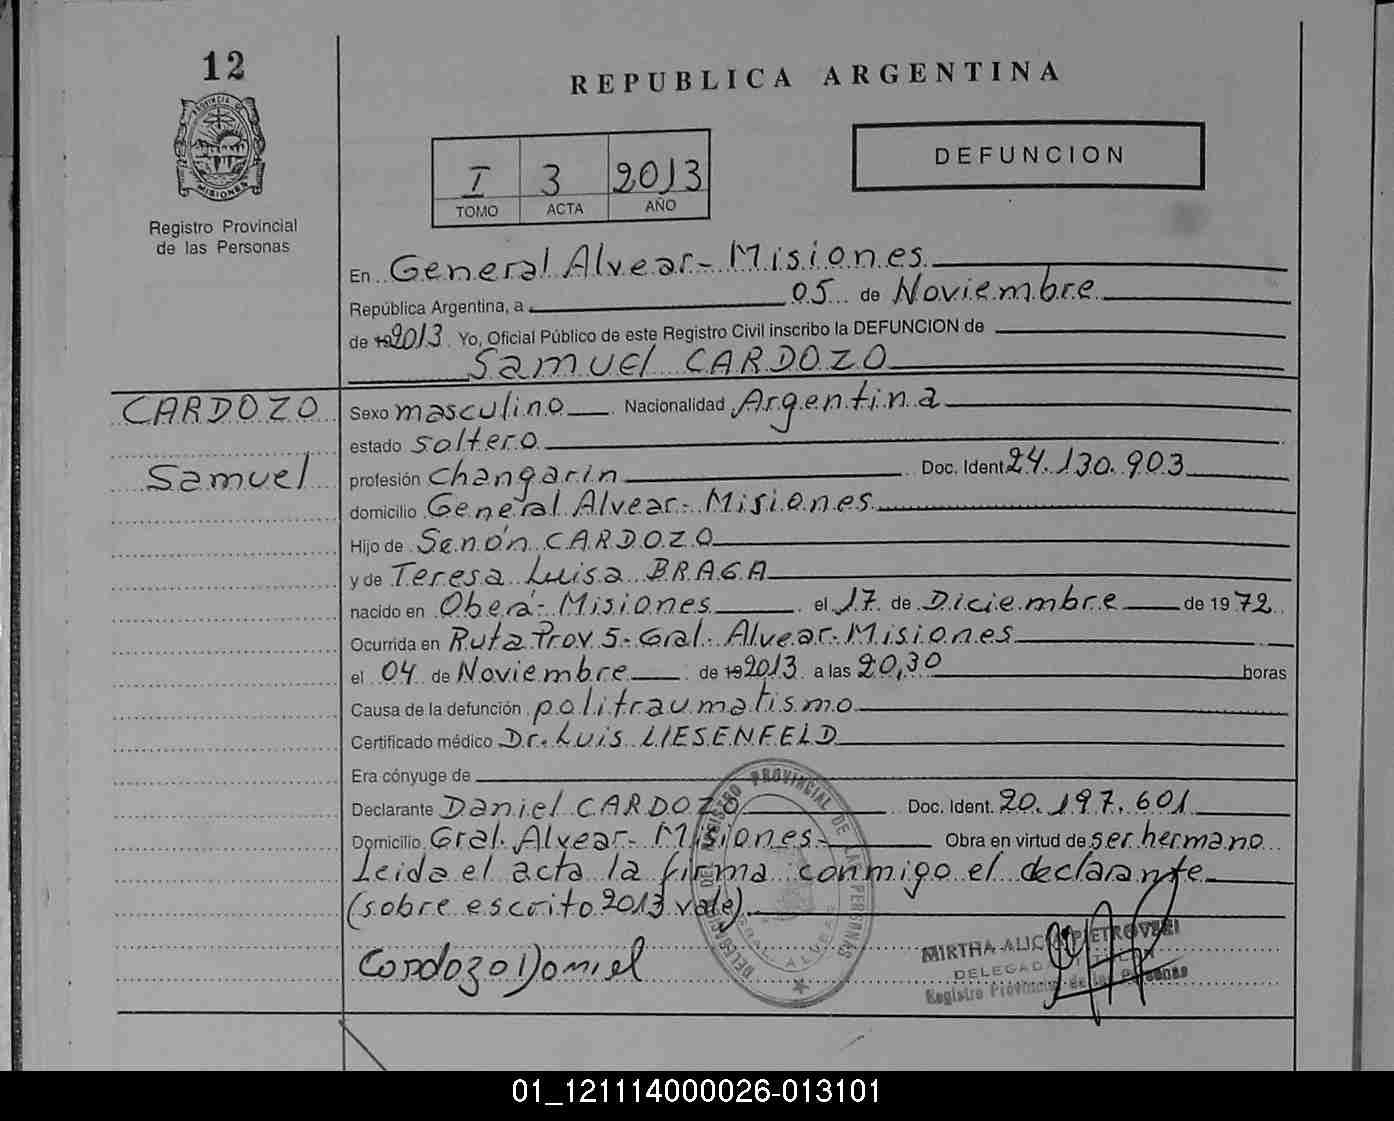 12
PROVINCIA DE
MISIONES
Registro Provincial
de las Personas
REPUBLICA ARGENTINA
I 3 2013
TOMO ACTA AÑO
DEFUNCION
En General Alvear - Misiones
República Argentina, a 05 de Noviembre
de 192013 Yo, Oficial Público de este Registro Civil inscribo la DEFUNCION de
Samuel CARDOZO
CARDOZO
Samuel
Sexo masculino Nacionalidad Argentina
estado soltero
profesión changarin Doc. Ident 24.130.903
domicilio General Alvear - Misiones
Hijo de Senón CARDOZO
y de Teresa Luisa BRAGA
nacido en Oberá - Misiones el 17 de Diciembre de 1972
Ocurrida en Ruta Prov 5 - Gral. Alvear - Misiones
el 04 de Noviembre de 192013 a las 20,30 horas
Causa de la defunción politraumatismo
Certificado médico Dr. Luis LIESENFELD
Era cónyuge de
Declarante Daniel CARDOZO Doc. Ident. 20.197.601
Domicilio Gral. Alvear - Misiones - Obra en virtud de ser hermano
Leida el acta la firma conmigo el declarante
(sobre escrito 2013 vale)
Cardozo Daniel
REGISTRO PROVINCIAL DE LAS PERSONAS
GRAL. ALVEAR
MIRTHA ALICIA PIETROVSKI
DELEGADA TITULAR
Registro Provincial de las Personas
01_121114000026-013101